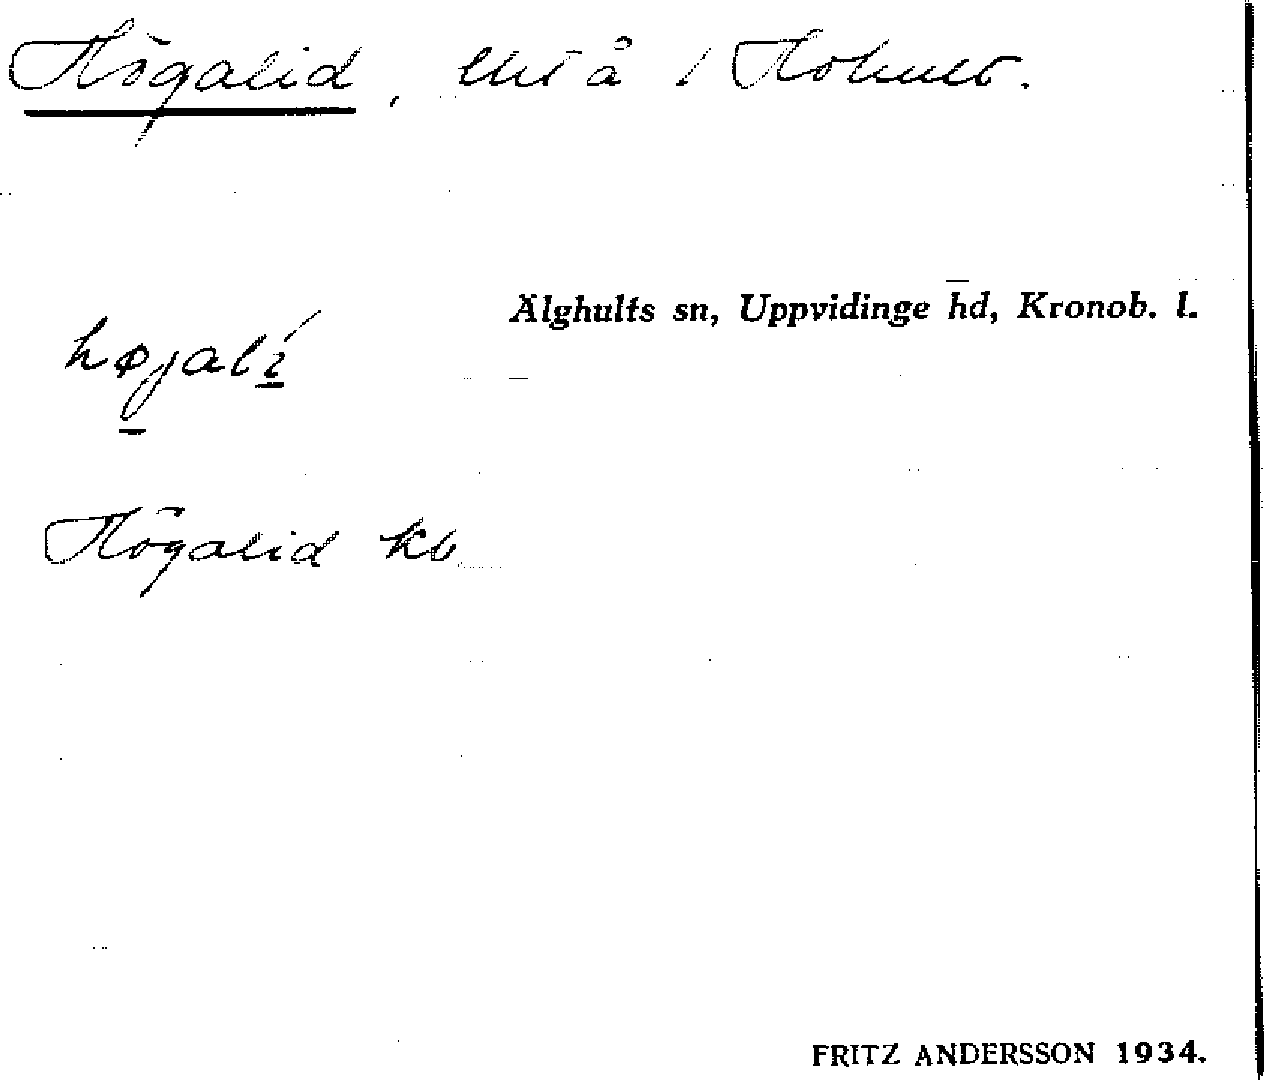 Högalid, lht å Hohult.
Älghults sn, Uppvidinge hd, Kronob. l.
högalí
Högalid kb
FRITZ ANDERSSON 1934.